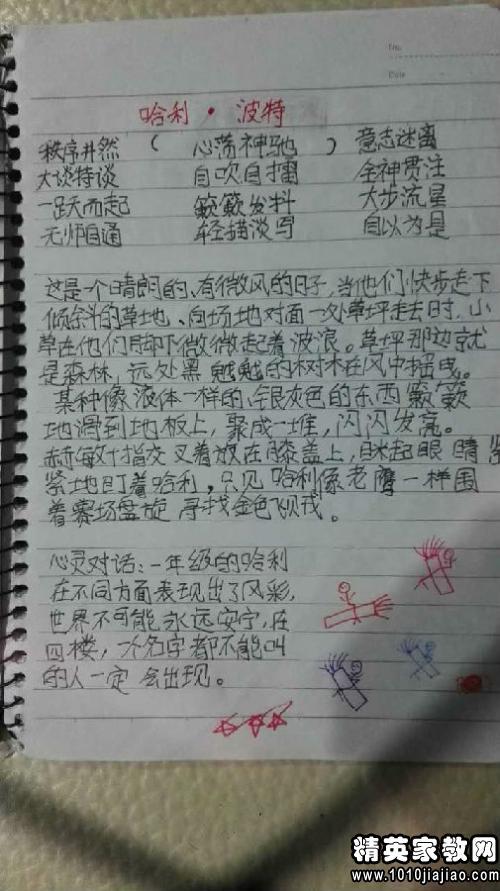 No.
Date
哈利·波特
秩序井然 ( 心荡神驰 ) 意志迷离
大谈特谈 自吹自擂 全神贯注
一跃而起 簌簌发抖 大步流星
无师自通 轻描淡写 自以为是
这是一个晴朗的、有微风的日子,当他们快步走下
倾斜的草地、向场地对面一处草坪走去时,小
草在他们脚下微微起着波浪。草坪那边就
是森林,远处黑魆魆的树木在风中摇曳。
某种像液体一样的、银灰色的东西簌簌
地滑到地板上,聚成一堆,闪闪发亮。
赫敏十指交叉着放在膝盖上,眯起眼睛紧
紧地盯着哈利,只见哈利像老鹰一样围
着赛场盘旋 寻找金色飞贼。
心灵对话:一年级的哈利
在不同方面表现出了风彩,
世界不可能永远安宁,在
四楼,一个名字都不能叫
的人一定会出现。
精英家教网
www.1010jiajiao.com